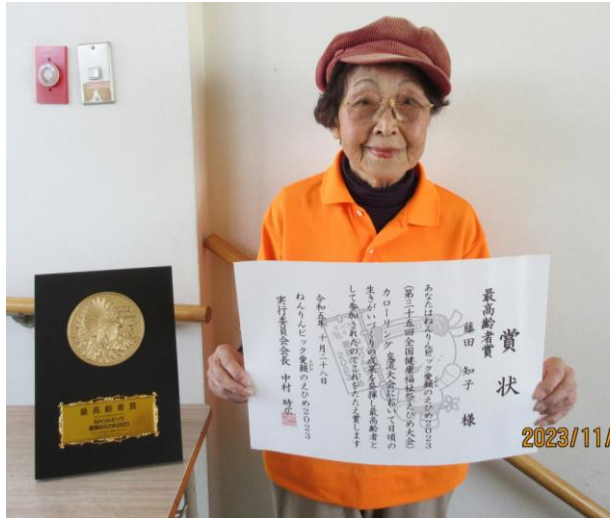 賞状
最高齢者賞
藤田 知子 様
あなたはねんりんピック愛顔のえひめ2023
(第三十五回全国健康福祉祭えひめ大会)
カローリング交流大会において日頃の
生きがいづくりの成果を発揮し最高齢者と
して参加されたのでこれをたたえ賞します
令和五年十月二十八日
ねんりんピック愛顔のえひめ2023
実行委員会会長 中村 時広
最高齢者賞
ねんりんピック
愛顔のえひめ2023
2023/11/